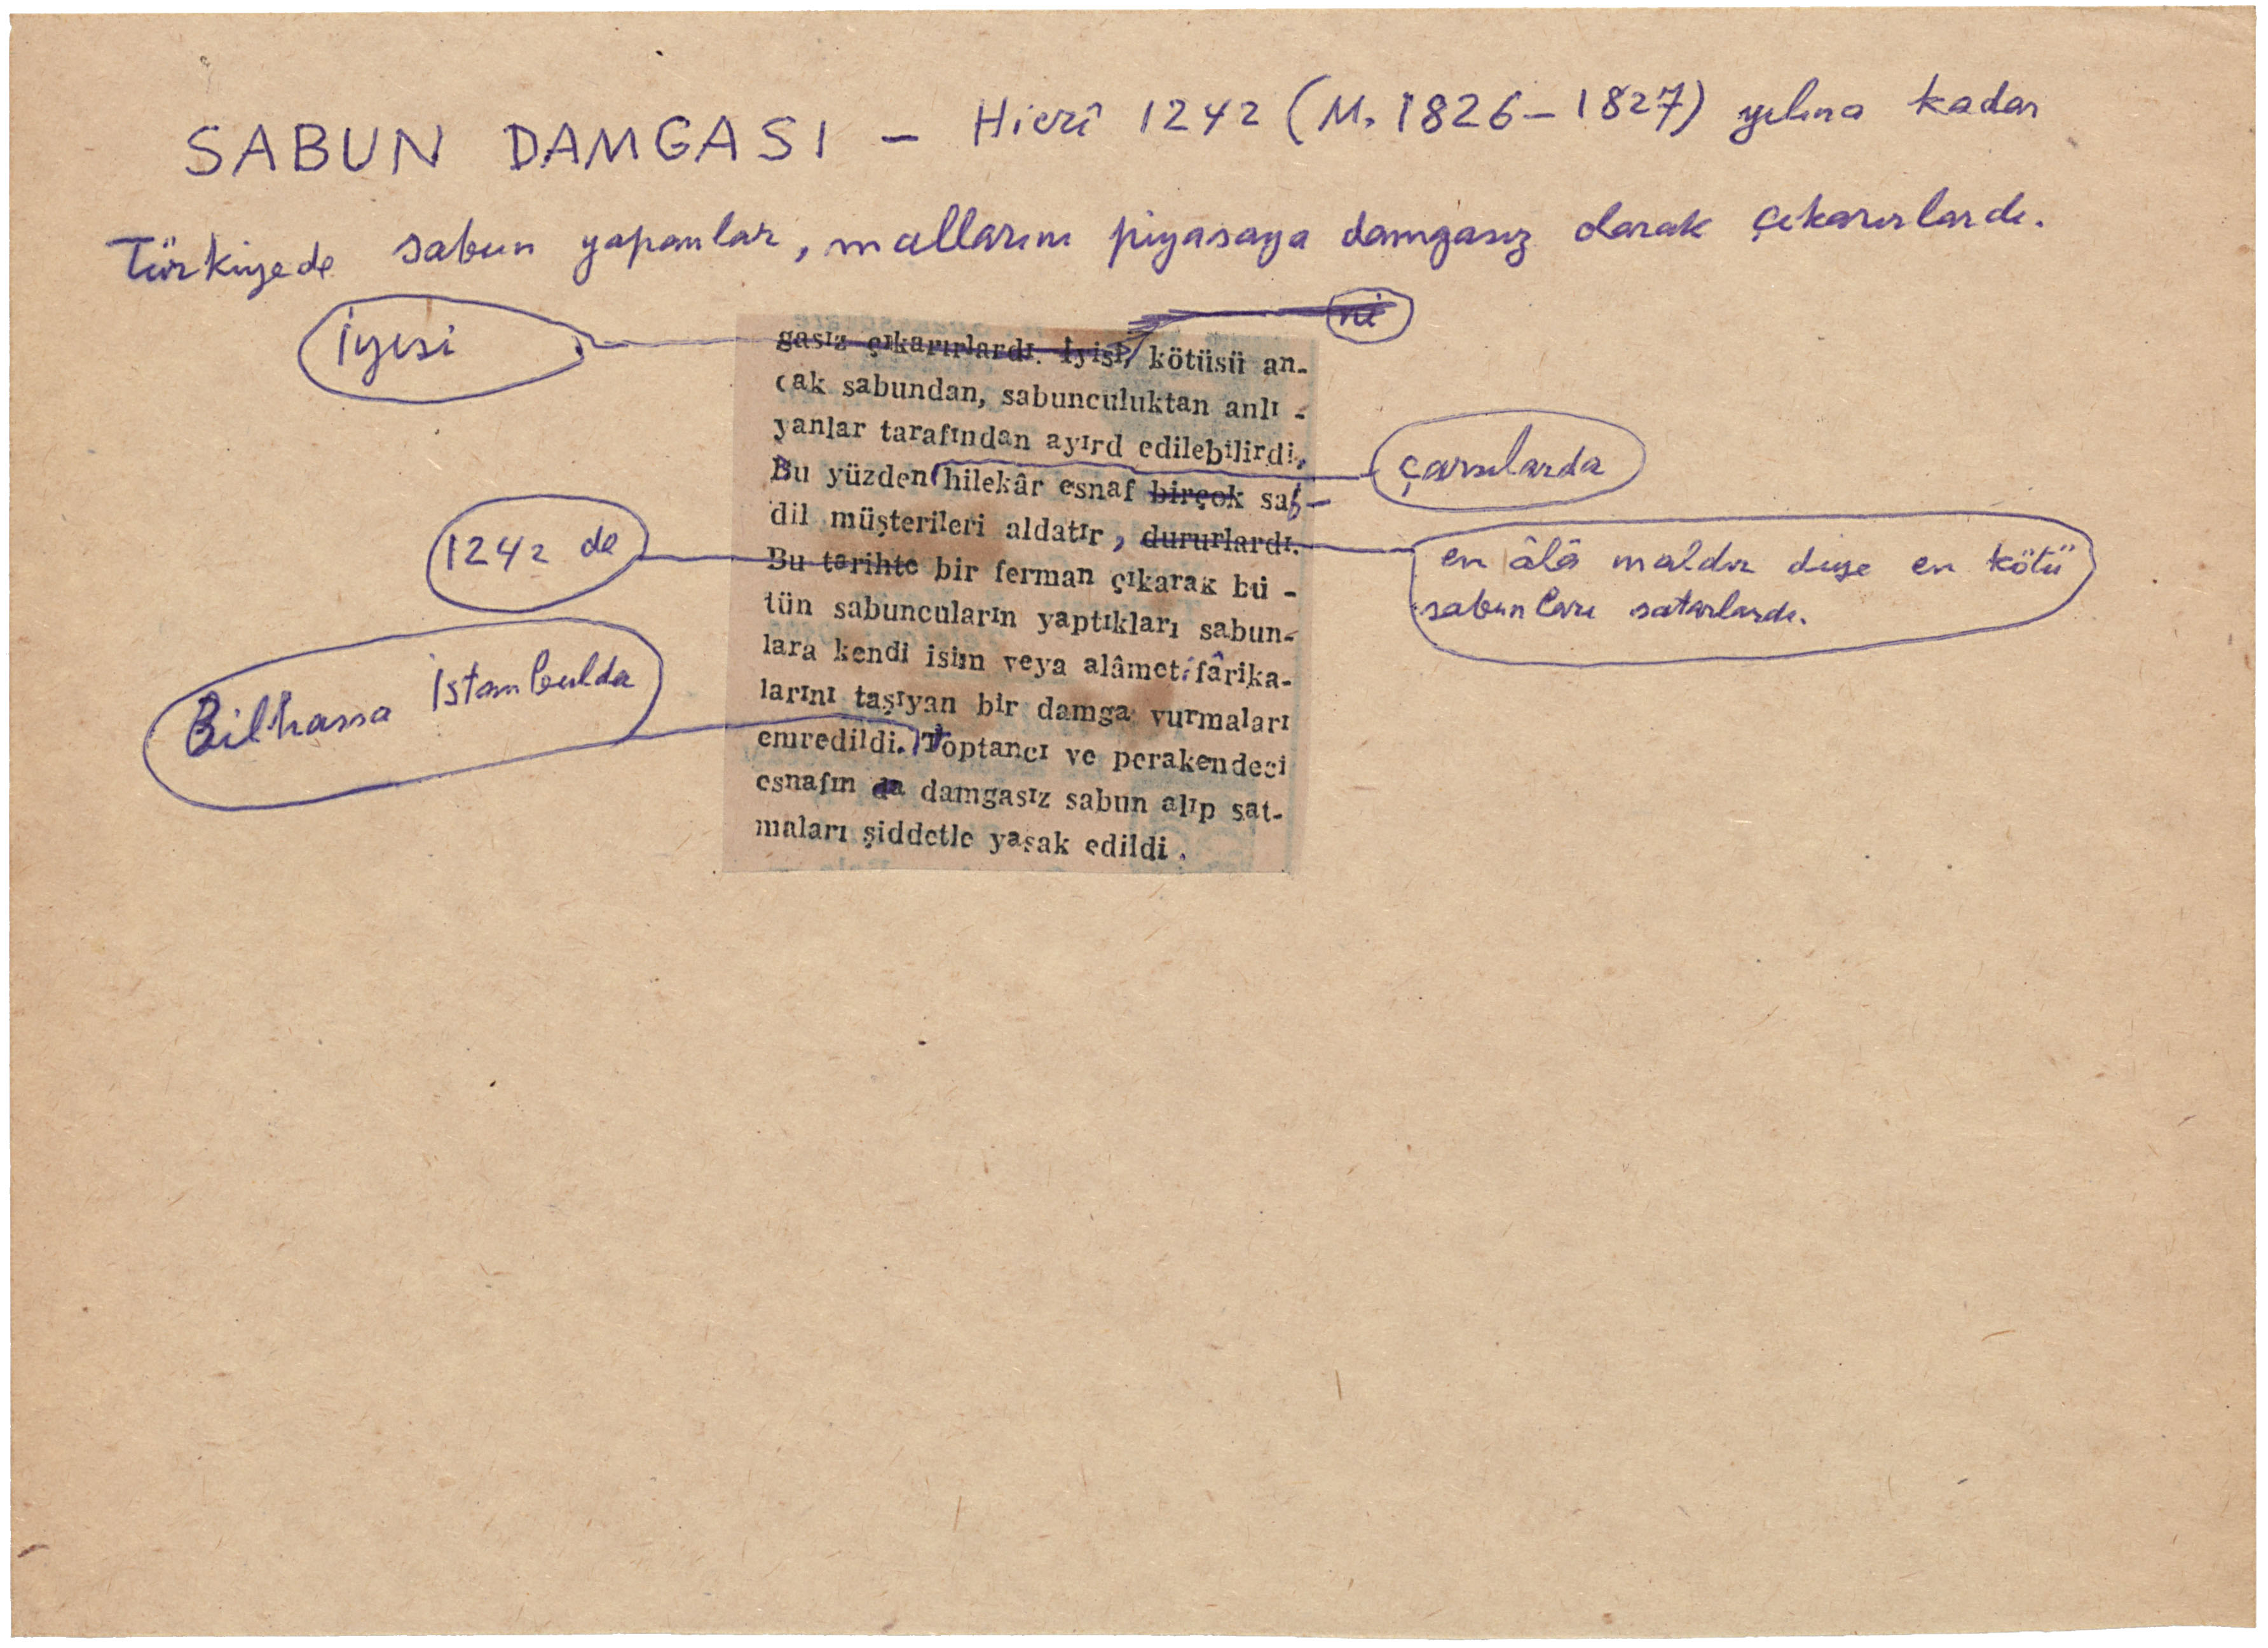 SABUN DAMGASI – Hicrî 1242 (M. 1826–1827) yılına kadar
Türkiyede sabun yapanlar, mallarını piyasaya damgasız olarak çıkarırlardı.
İyisi
ni
gasız çıkarırlardı. İyisi, kötüsü an-
cak sabundan, sabunculuktan anlı -
yanlar tarafından ayırd edilebilirdi.
çarşılarda
Bu yüzden hilekâr esnaf birçok saf-
dil müşterileri aldatır, dururlardı.
1242 de
en âlâ maldır diye en kötü
sabunları satarlardı.
Bu tarihte bir ferman çıkarak bü -
tün sabuncuların yaptıkları sabun-
lara kendi isim veya alâmeti fârika-
larını taşıyan bir damga vurmaları
Bilhassa İstanbulda
emredildi. Toptancı ve perakendeci
esnafın da damgasız sabun alıp sat-
maları şiddetle yasak edildi.